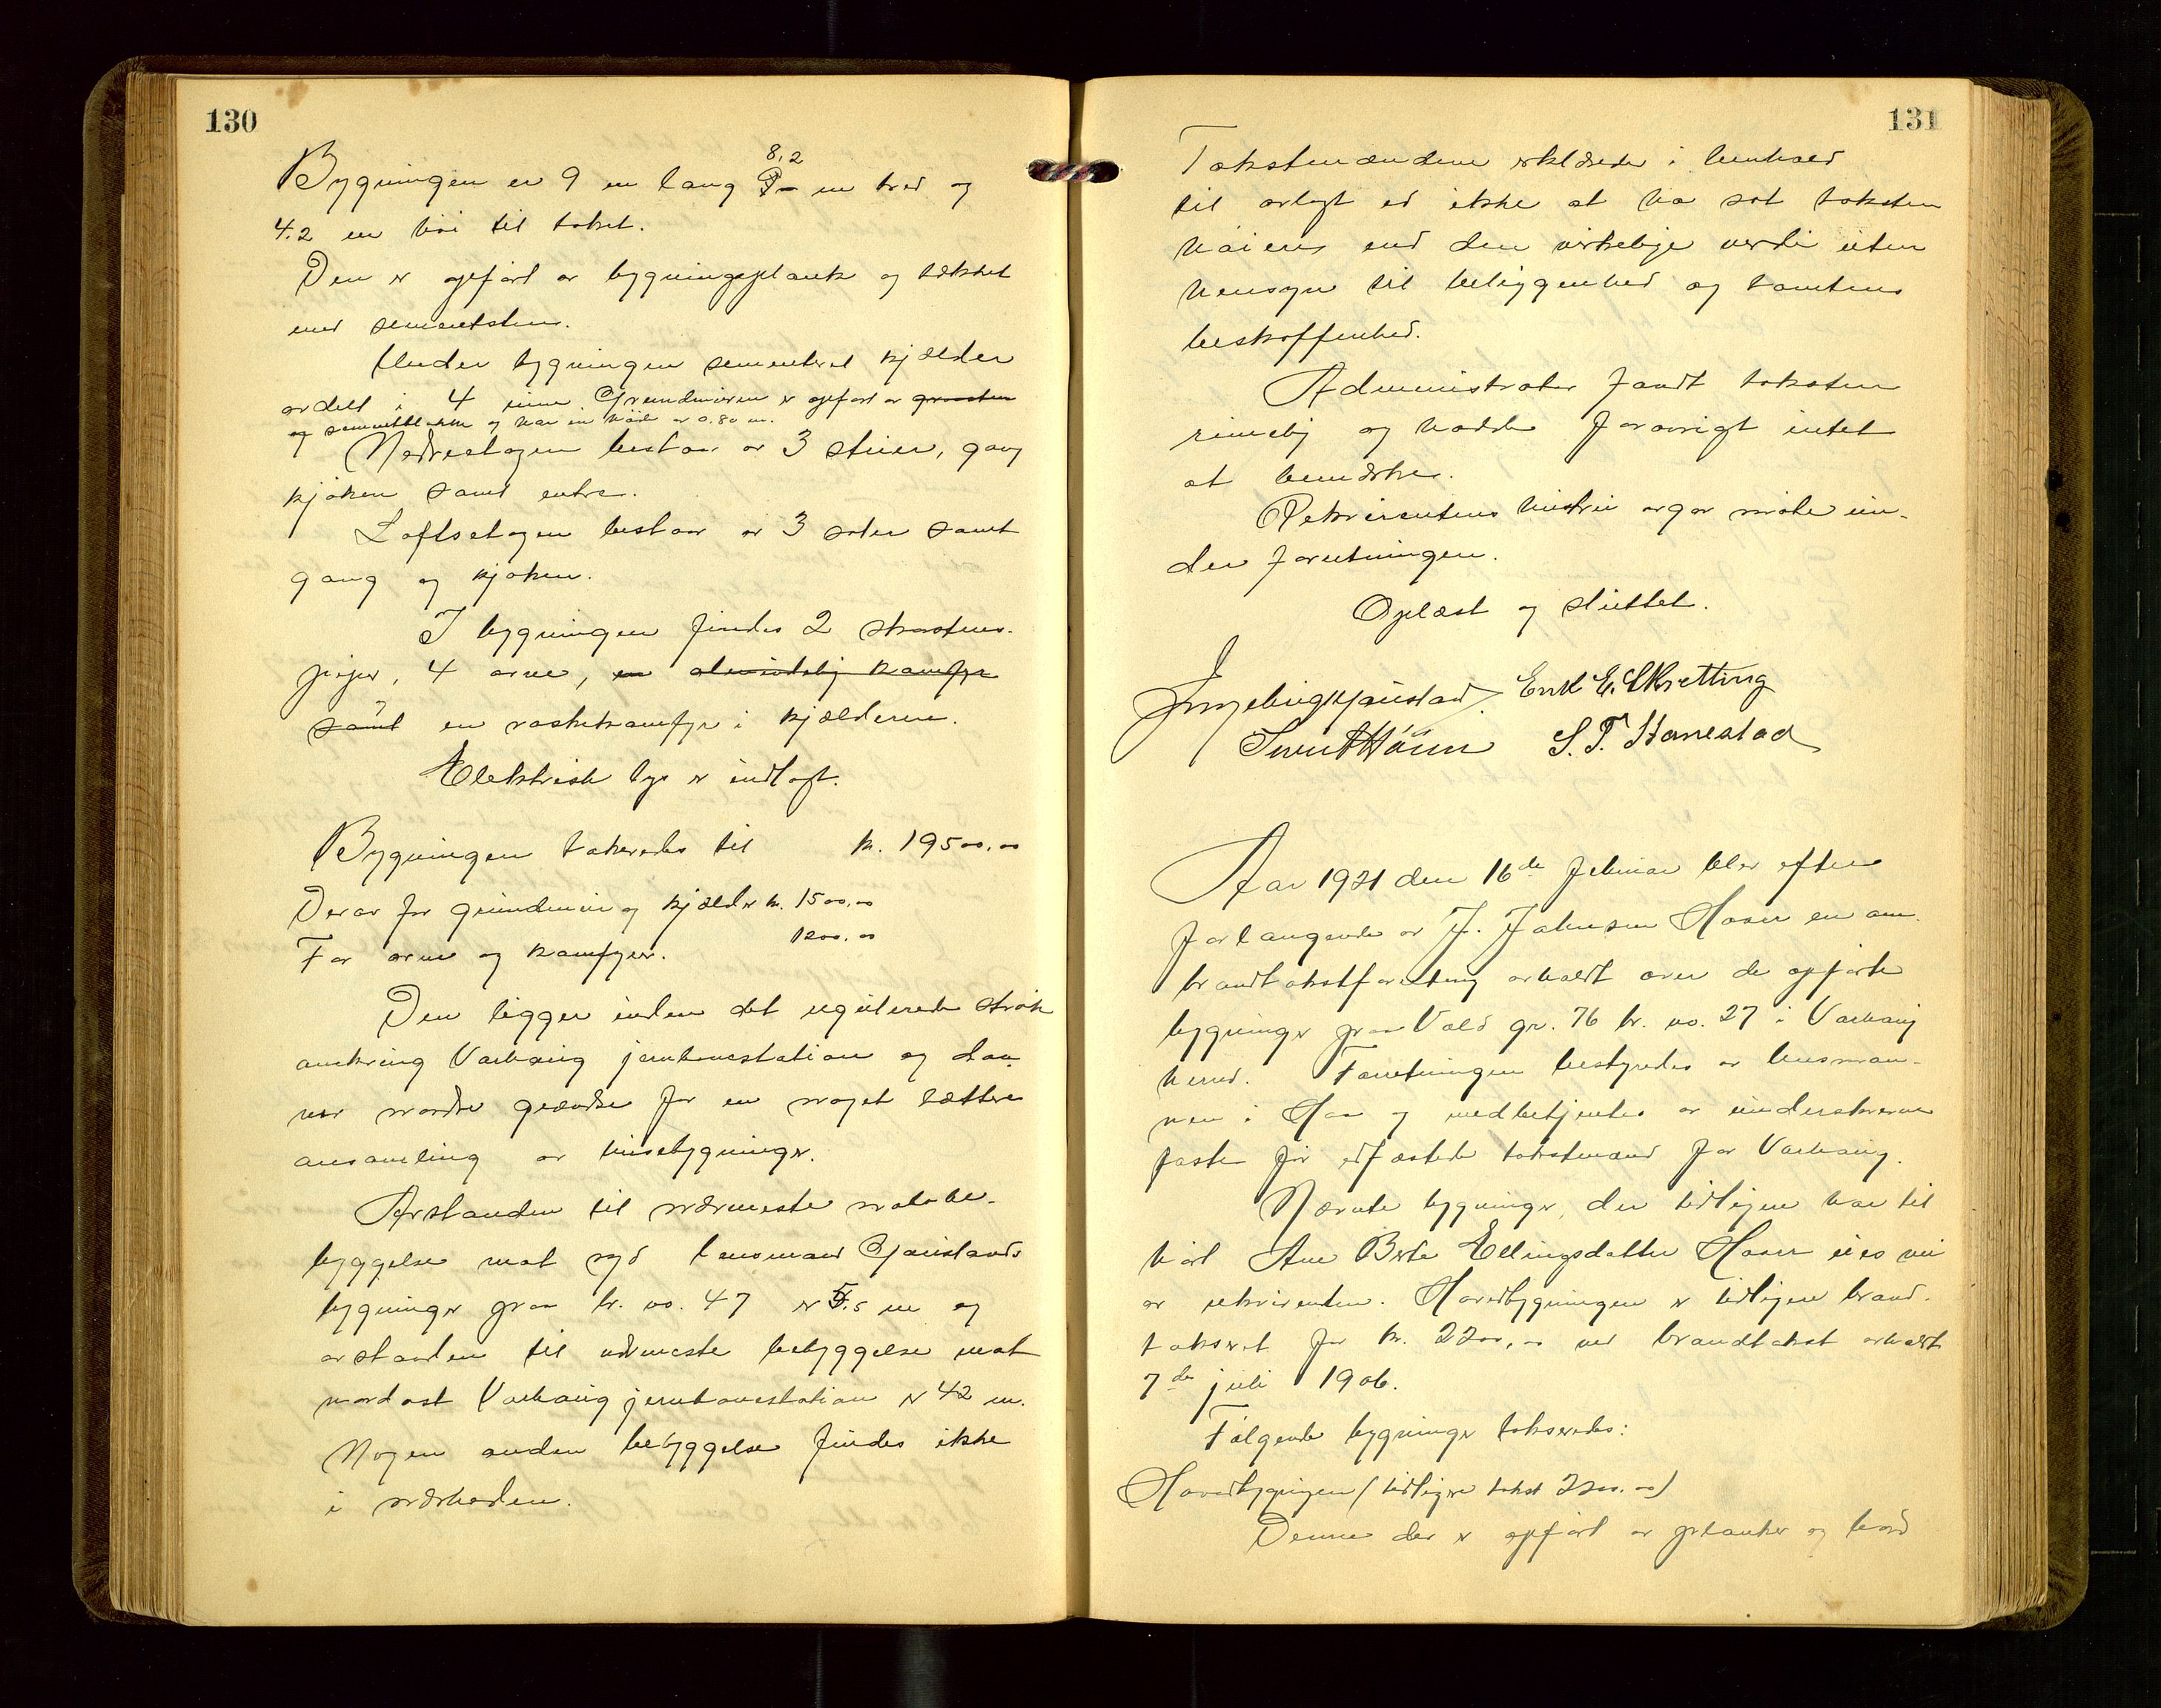 130
8,2
Bygningen er 9 m lang 9- m bred og
4.2 m høi til taket.
Den er opført av bygningsplank og tækket
med sementsten.
Under bygningen sementeret kjælder
avdelt i 4 rum. Grundmuren er opført av graasten
og sementblokker og har en høide av 0.80 m.
Nedreetagen bestaar av 3 stuer, gang
kjøken samt entre.
Loftsetagen bestaar av 3 saler samt
gang og kjøken.
I bygningen findes 2 skorstens-
piper, 4 ovne, en almindelig kamfyr
og
samt en vaskekamfyr i kjælderen.
Elektrisk lys er indlagt.
Bygningen takseredes til kr. 19500,00
Derav for grundmur og kjælder kr. 1500,00
For ovne og kamfyrer. 1200,00
Den ligger inden det regulerede strøk
omkring Varhaug jernbanestation og dan-
ner nordre grændse for en noget tættere
ansamling av husebygninger.
Avstanden til nærmeste nabobe-
byggelse mot syd lensmand Gjaustads
bygninger paa br. no. 47 er 5.5 m og
avstanden til nærmeste bebyggelse mot
nordost Varhaug jernbanestation er 42 m.
Nogen anden bebyggelse findes ikke
i nærheden.
131
Takstmændene erklærede i henhold
til avlagt ed ikke at ha sat taksten
høiere end den virkelige verdi uten
hensyn til beliggenhed og tomtens
beskaffenhed.
Administrator fandt taksten
rimelig og hadde forøvrigt intet
at bemærke.
Rekvirentens hustru avgav møte un-
der forretningen.
Oplæst og sluttet.
Ingebrigt Gjaustad Enk E. Skretting
Sven Høien S. T. Hanestad
Aar 1921 den 16de februar blev efter
forlangende av J. Jakobsen Haaer en om-
brandtakstforretning avholdt over de opførte
bygninger paa Vold gr. 76 br. no. 27 i Varhaug
herred. Forretningen bestyredes av lensman-
nen i Haa og medbetjentes av underskrevne
faste før edfæstede takstmænd for Varhaug.
Nævnte bygninger, der tidligere har til
hørt Ane Berte Ellingsdatter Haaer eies nu
av rekvirenten. Hovedbygningen er tidligere brand-
taksert for kr. 2200,00 ved brandtakst avholdt
7de juli 1906.
Følgende bygninger takseredes:
Hovedbygningen (tidligere takst 2200.00)
Denne der er opført av planker og bord